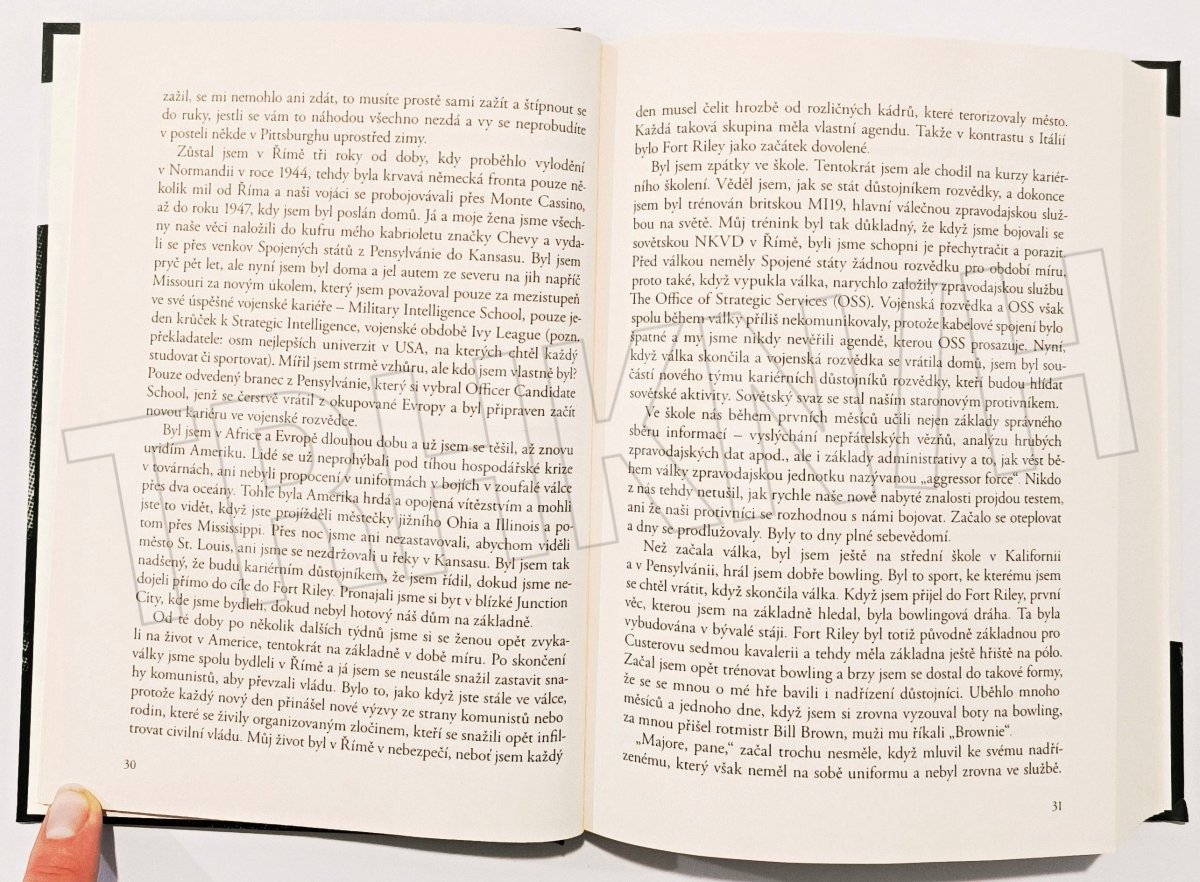 zažil, se mi nemohlo ani zdát, to musíte prostě sami zažít a štípnout se
do ruky, jestli se vám to náhodou všechno nezdá a vy se neprobudíte
v posteli někde v Pittsburghu uprostřed zimy.
Zůstal jsem v Římě tři roky od doby, kdy proběhlo vylodění
v Normandii v roce 1944, tehdy byla krvavá německá fronta pouze ně-
kolik mil od Říma a naši vojáci se probojovávali přes Monte Cassino,
až do roku 1947, kdy jsem byl poslán domů. Já a moje žena jsme všech-
ny naše věci naložili do kufru mého kabrioletu značky Chevy a vyda-
li se přes venkov Spojených států z Pensylvánie do Kansasu. Byl jsem
pryč pět let, ale nyní jsem byl doma a jel autem ze severu na jih napříč
Missouri za novým úkolem, který jsem považoval pouze za mezistupeň
ve své úspěšné vojenské kariéře – Military Intelligence School, pouze je-
den krůček k Strategic Intelligence, vojenské období Ivy League (pozn.
překladatele: osm nejlepších univerzit v USA, na kterých chtěl každý
studovat či sportovat). Mířil jsem strmě vzhůru, ale kdo jsem vlastně byl?
Pouze odvedený branec z Pensylvánie, který si vybral Officer Candidate
School, jenž se čerstvě vrátil z okupované Evropy a byl připraven začít
novou kariéru ve vojenské rozvědce.
Byl jsem v Africe a Evropě dlouhou dobu a už jsem se těšil, až znovu
uvidím Ameriku. Lidé se už neprohýbali pod tíhou hospodářské krize
v továrnách, ani nebyli propocení v uniformách v bojích v zoufalé válce
přes dva oceány. Tohle byla Amerika hrdá a opojená vítězstvím a mohli
jste to vidět, když jste projížděli městečky jižního Ohia a Illinois a po-
tom přes Mississippi. Přes noc jsme ani nezastavovali, abychom viděli
město St. Louis, ani jsme se nezdržovali u řeky v Kansasu. Byl jsem tak
nadšený, že budu kariérním důstojníkem, že jsem řídil, dokud jsme ne-
dojeli přímo do cíle do Fort Riley. Pronajali jsme si byt v blízké Junction
City, kde jsme bydleli, dokud nebyl hotový náš dům na základně.
Od té doby po několik dalších týdnů jsme si se ženou opět zvyka-
li na život v Americe, tentokrát na základně v době míru. Po skončení
války jsme spolu bydleli v Římě a já jsem se neustále snažil zastavit sna-
hy komunistů, aby převzali vládu. Bylo to, jako když jste stále ve válce,
protože každý nový den přinášel nové výzvy ze strany komunistů nebo
rodin, které se živily organizovaným zločinem, kteří se snažili opět infil-
trovat civilní vládu. Můj život byl v Římě v nebezpečí, neboť jsem každý
30
den musel čelit hrozbě od rozličných kádrů, které terorizovaly město.
Každá taková skupina měla vlastní agendu. Takže v kontrastu s Itálií
bylo Fort Riley jako začátek dovolené.
Byl jsem zpátky ve škole. Tentokrát jsem ale chodil na kurzy kariér-
ního školení. Věděl jsem, jak se stát důstojníkem rozvědky, a dokonce
jsem byl trénován britskou MI19, hlavní válečnou zpravodajskou služ-
bou na světě. Můj trénink byl tak důkladný, že když jsme bojovali se
sovětskou NKVD v Římě, byli jsme schopni je přechytračit a porazit.
Před válkou neměly Spojené státy žádnou rozvědku pro období míru,
proto také, když vypukla válka, narychlo založily zpravodajskou službu
The Office of Strategic Services (OSS). Vojenská rozvědka a OSS však
spolu během války příliš nekomunikovaly, protože kabelové spojení bylo
špatné a my jsme nikdy nevěřili agendě, kterou OSS prosazuje. Nyní,
když válka skončila a vojenská rozvědka se vrátila domů, jsem byl sou-
částí nového týmu kariérních důstojníků rozvědky, kteří budou hlídat
sovětské aktivity. Sovětský svaz se stal naším staronovým protivníkem.
Ve škole nás během prvních měsíců učili nejen základy správného
sběru informací – vyslýchání nepřátelských vězňů, analýzu hrubých
zpravodajských dat apod., ale i základy administrativy a to, jak vést bě-
hem války zpravodajskou jednotku nazývanou „aggressor force“. Nikdo
z nás tehdy netušil, jak rychle naše nově nabyté znalosti projdou testem,
ani že naši protivníci se rozhodnou s námi bojovat. Začalo se oteplovat
a dny se prodlužovaly. Byly to dny plné sebevědomí.
Než začala válka, byl jsem ještě na střední škole v Kalifornii
a v Pensylvánii, hrál jsem dobře bowling. Byl to sport, ke kterému jsem
se chtěl vrátit, když skončila válka. Když jsem přijel do Fort Riley, první
věc, kterou jsem na základně hledal, byla bowlingová dráha. Ta byla
vybudována v bývalé stáji. Fort Riley byl totiž původně základnou pro
Custerovu sedmou kavalerii a tehdy měla základna ještě hřiště na pólo.
Začal jsem opět trénovat bowling a brzy jsem se dostal do takové formy,
že se se mnou o mé hře bavili i nadřízení důstojníci. Uběhlo mnoho
měsíců a jednoho dne, když jsem si zrovna vyzouval boty na bowling,
za mnou přišel rotmistr Bill Brown, muži mu říkali „Brownie“.
„Majore, pane,“ začal trochu nesměle, když mluvil ke svému nadří-
zenému, který však neměl na sobě uniformu a nebyl zrovna ve službě.
31
TRHKNIH